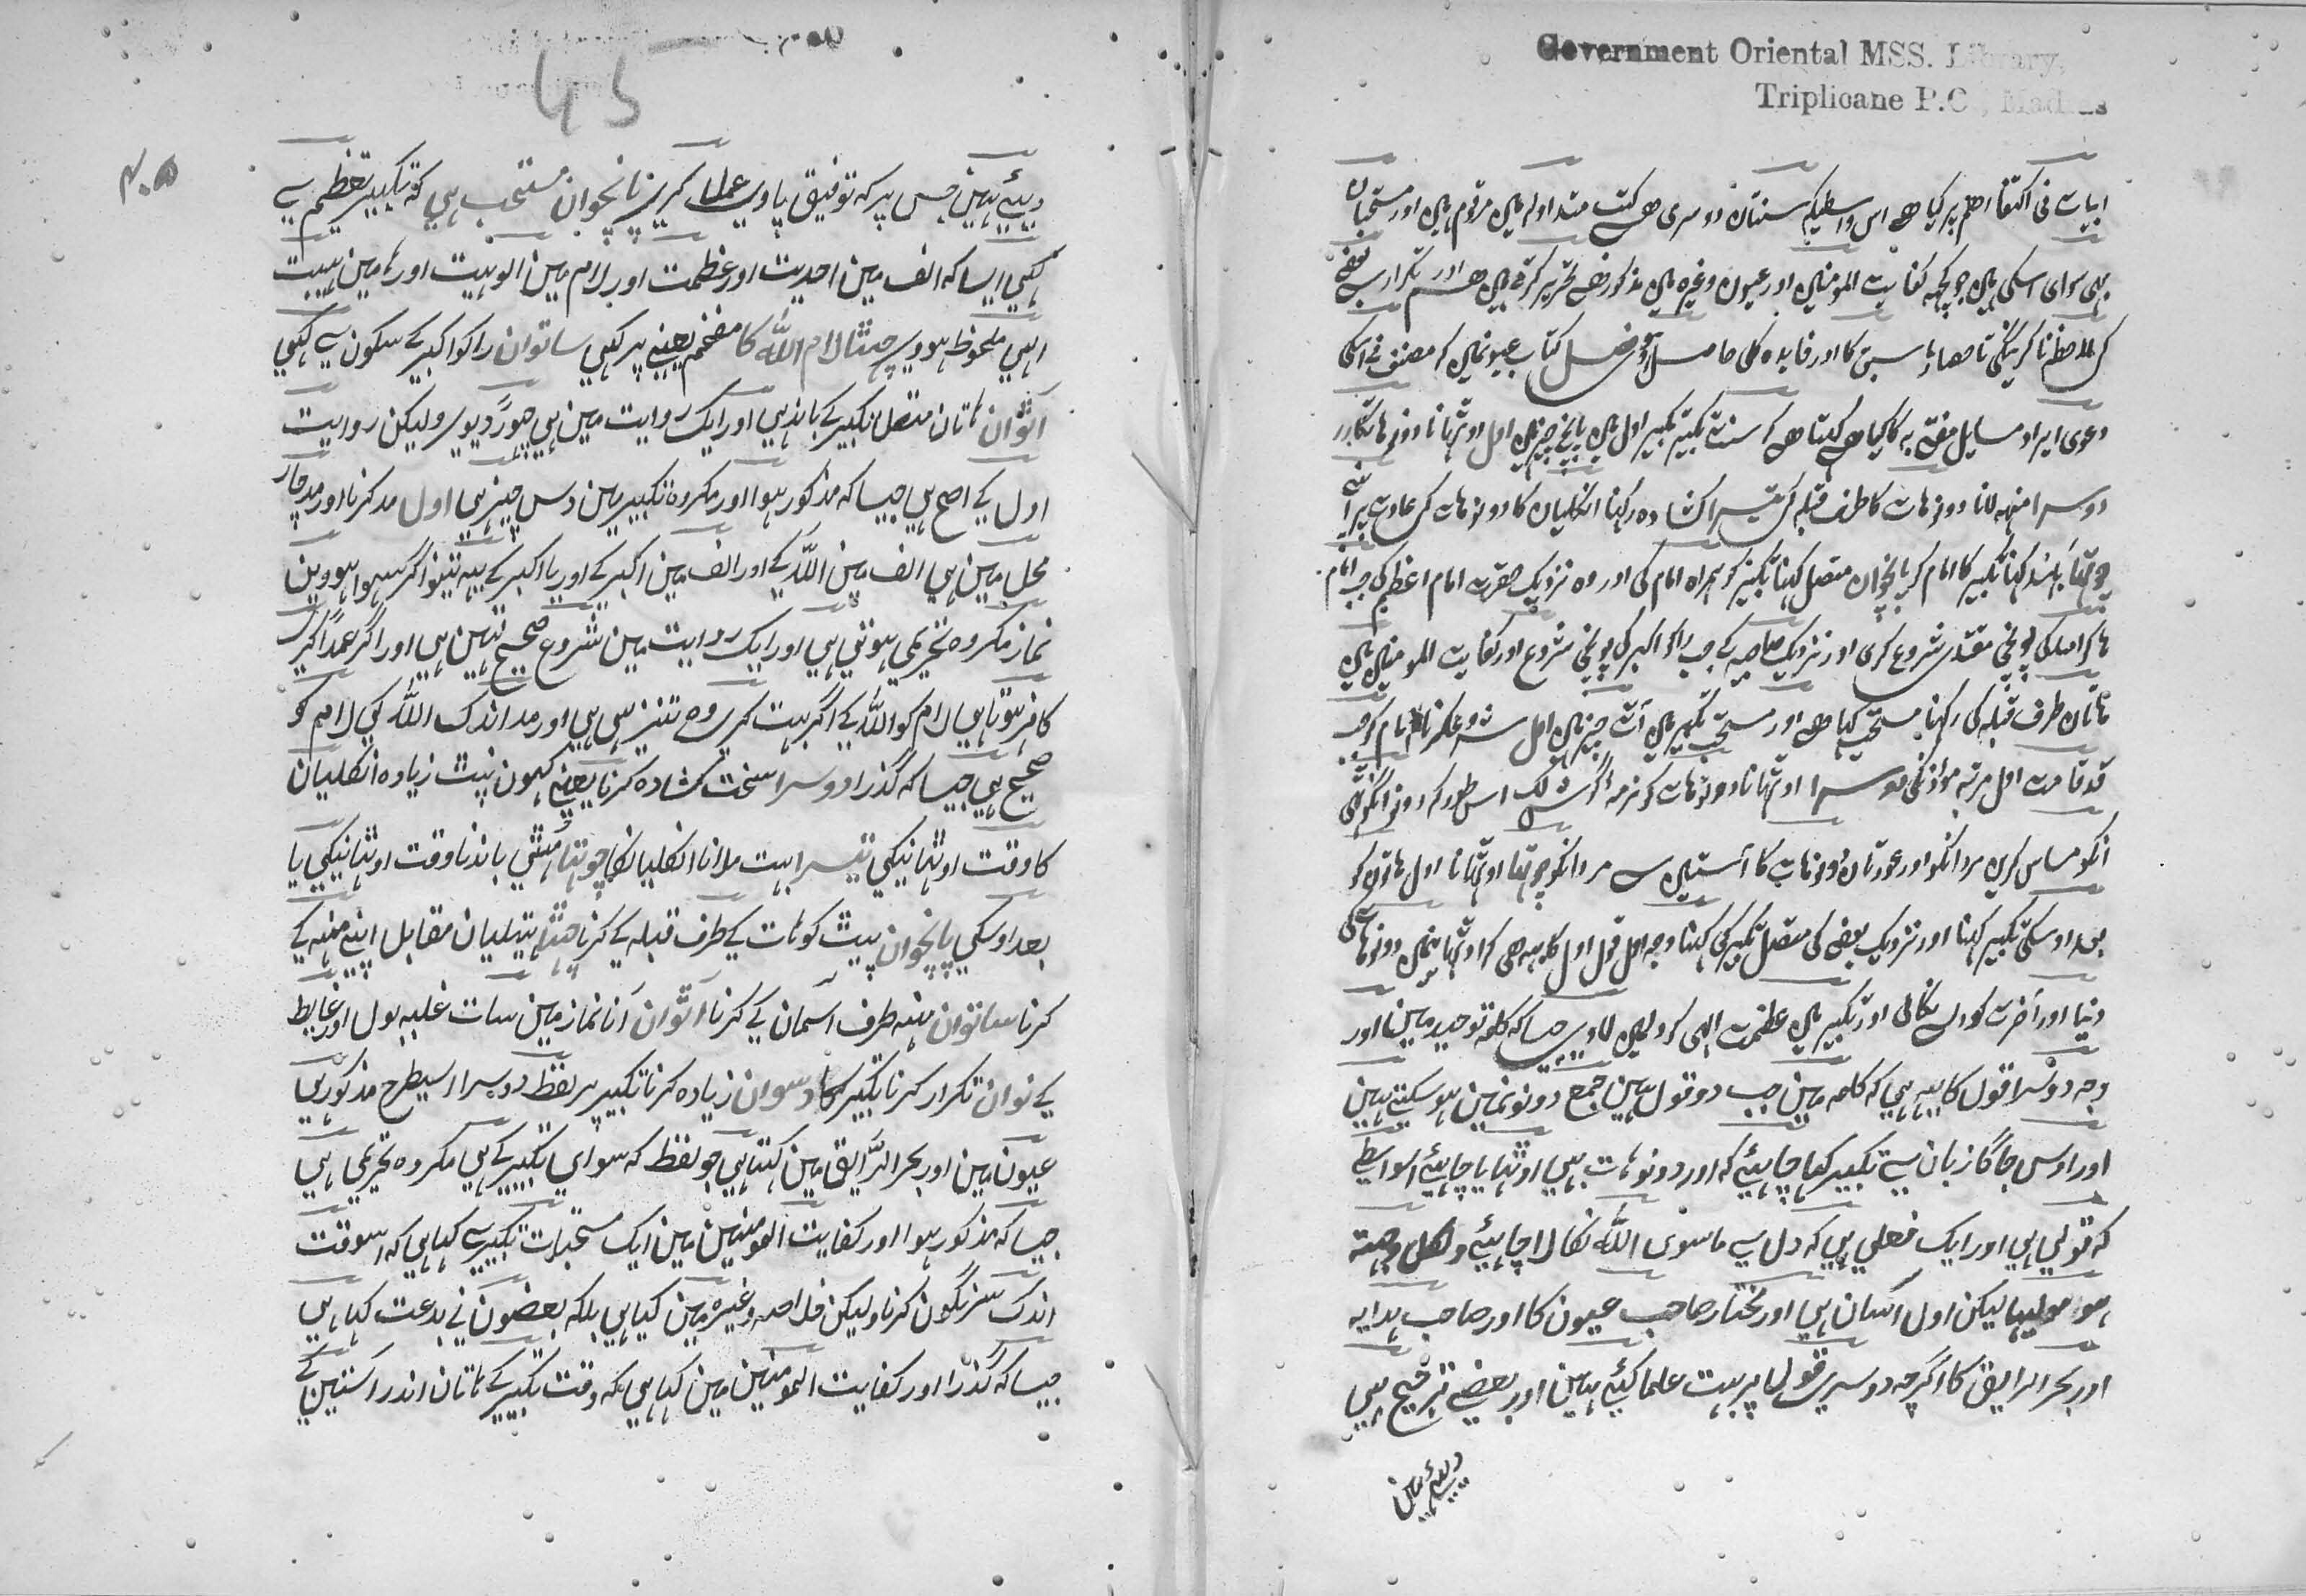 Government Oriental MSS. Library,
Triplicane P.O., Madras
ابیات نی اکتفا اهم پر کیا هی اس واسطیکہ سنتان دوسری هی کتب متداولہ میں مرقوم هیں اور مستحبان
بهی سوای اسکی هیں جو کچہہ کفایت المومنین اور عیون وغیرہ میں مذکور هی تحریر کرتی هیں هم اور تکرار سی
کی ملاحظہ نا کرینگی تا مصلی اس کا اور فایدہ کلی حاصل کتاب عیونمیں کہ مصنف نی اسکی
دعوی ایراد مسایل مفتی بہ کا کیا هی کہتا هی کہ سنت تکبیر اول میں پانچ چیز هیں اول اوٹہانا دونوهات کا
دوسرا منہہ لانا دونو هات کا طرف قبلہ کی تیسرا کشادہ رکہنا انگلیان کا دونو هات کی عادت پر اپنی
چوتها بلند کہنا تکبیر کا امام کو پانچوان متصل کہنا تکبیر کو همراہ امام کی اور وہ نزدیک حضرت امام اعظم کی جب امام
ها کو اللہ کی پونچی مقتدی شروع کری اور نزدیک صاحبیہ کی جب را کو اکبر کی پونچی شروع اور کفایت المومنین میں
هاتان طرف قبلہ کی رکہنا مستحب کہا هی اور مستحب تکبیر میں آٹ چیز هیں اول شروع کرنا امام کو جب
قد قامت اول مرتبہ موذن کی دوسرا اوٹہانا دونوهات کو نرمہ گوش تلک اس طور کہ دونو انگوٹهی
انکو مساس کریں مردانکو اور عورتان دونوهات کا آستین سی مردانکو چوتها اوٹہانا اول هاتون کو
بعد اوسکی تکبیر کہنا اور نزدیک بعضی کی متصل تکبیر کی کہنا وجہ اول قول اول کا یہہ هی کہ اوٹہانیمیں دونو هات کی
دنیا اور آخرت کو دل سی نکالی اور تکبیر میں عظمت الہی کو دلمیں لاوی جیسا کہ کلمہ توحید مین اور
وجہ دوسرا قول کا یہہ هی کہ کلمہ مین جب دو قول هین جمع دونو نمین هو سکتے هین
اور اوس جاگا زبان سے تکبیر کہا چاہئے کہ اور دونو هات بهی اوٹهایا چاہئے اسواسطے
کہ قولی هی اور ایک فعلی هی کہ دل سے ماسوی اللہ نکالا چاہئے ولکل وجهة
هو مولیها لیکن اول آسان هی اور مختار صاحب عیون کا اور صاحب هدایہ
اور بحر الرایق کا اگرچہ دوسری قول پر بہت علما گئے هین اور بعضے ترجیح بهی
دیئے هین
۴۰۵
دیئے هین جس پر کہ توفیق پاوی عمل کرین پانچوان مستحب هی کہ تکبیر تعظیم سے
کہے ایسا کہ الف مین احدیت اور عظمت اور لام مین الوهیت اور ها مین هیبت
الهی ملحوظ هووی چهٹا لام اللہ کا مفخم یعنے پر کہے ساتوان را کو اکبر کے سکون سے کہے
آٹوان هاتان متصل تکبیر کے باندهی اور ایک روایت مین هی چهوڑ دیوی ولیکن روایت
اول کے اصح هی جیسا کہ مذکور هوا اور مکروہ تکبیر مین دس چیز هی اول مد کرنا اور مد چار
محل مین هی الف مین اللہ کے اور الف مین اکبر کے اور با اکبر کے یہہ تینو اگر سهوا هووین
نماز مکروہ تحریمی هوتی هی اور ایک روایت مین شروع صحیح نہین هی اور اگر عمداً کرے
کافر هوتا هی لام کو اللہ کے اگر بہت کری وہ تنزیهی هی اور مد اندک اللہ کی لام کو
صحیح هی جیسا کہ گذرا دوسرا سخت کشادہ کرنا یعنے کہون نپٹ زیادہ انگلیان
کا وقت اوٹهانیکے تیسرا بہت ملانا انگلیانکا چوتها مٹهی باندنا وقت اوٹهانیکے یا
بعد اوسکے پانچوان پیٹ کو هات کے طرف قبلہ کے کرنا چهٹا هتیلیان مقابل اپنے منہہ کے
کرنا ساتوان منہہ طرف آسمان کے کرنا آٹوان آنا نماز مین سات غلبہ بول اور غایط
کے نوان تکرار کرنا تکبیر کا دسوان زیادہ کرنا تکبیر پر لفظ دوسرا اسیطرح مذکور هی
عیون مین اور بحر الرایق مین کہتا هی جو لفظ کہ سوای تکبیر کے هی مکروہ تحریمی هی
جیسا کہ مذکور هوا اور کفایت المومنین مین ایک مستحبات تکبیر سے کہا هی کہ اسوقت
اندک سرنگون کرنا ولیکن خلاصہ وغیرہ مین کہا هی بلکہ بعضون نے بدعت کہا هی
جیسا کہ گذرا اور کفایت المومنین مین کہا هی کہ وقت تکبیر کے هاتان اندر آستین کے